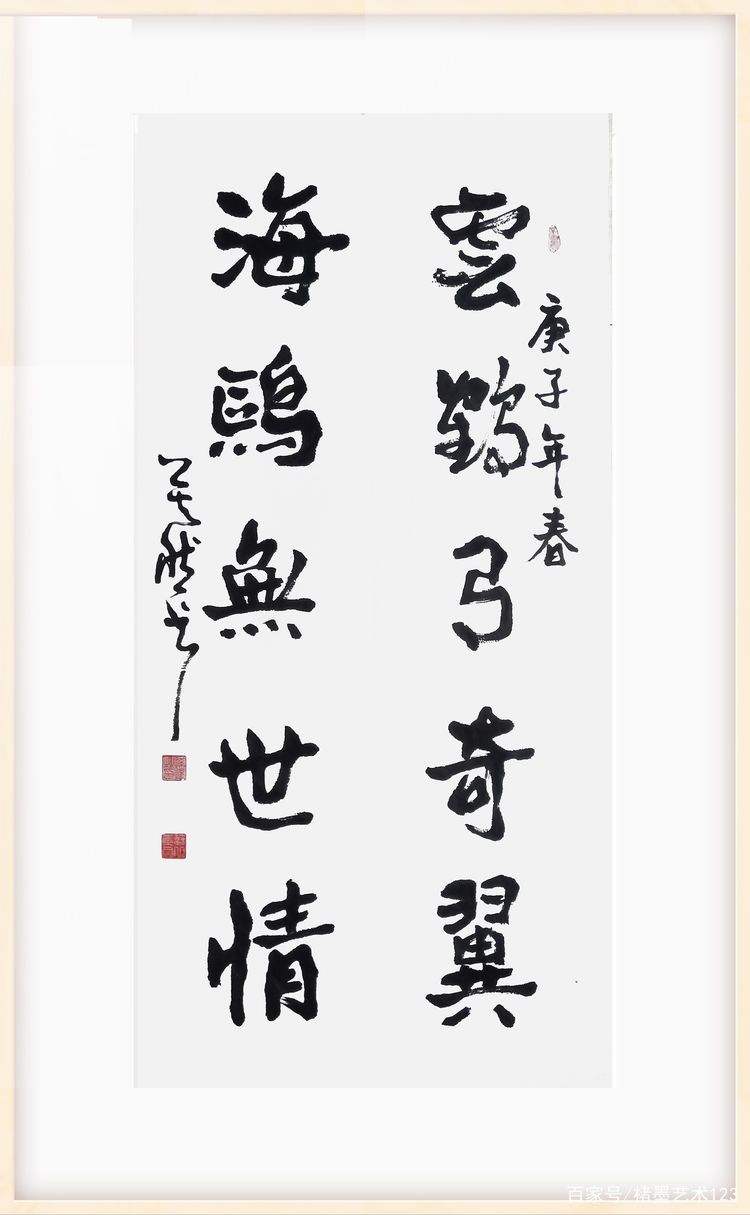 庚子年春
雲鶴有奇翼
海鷗無世情
百家号/楮墨艺术123